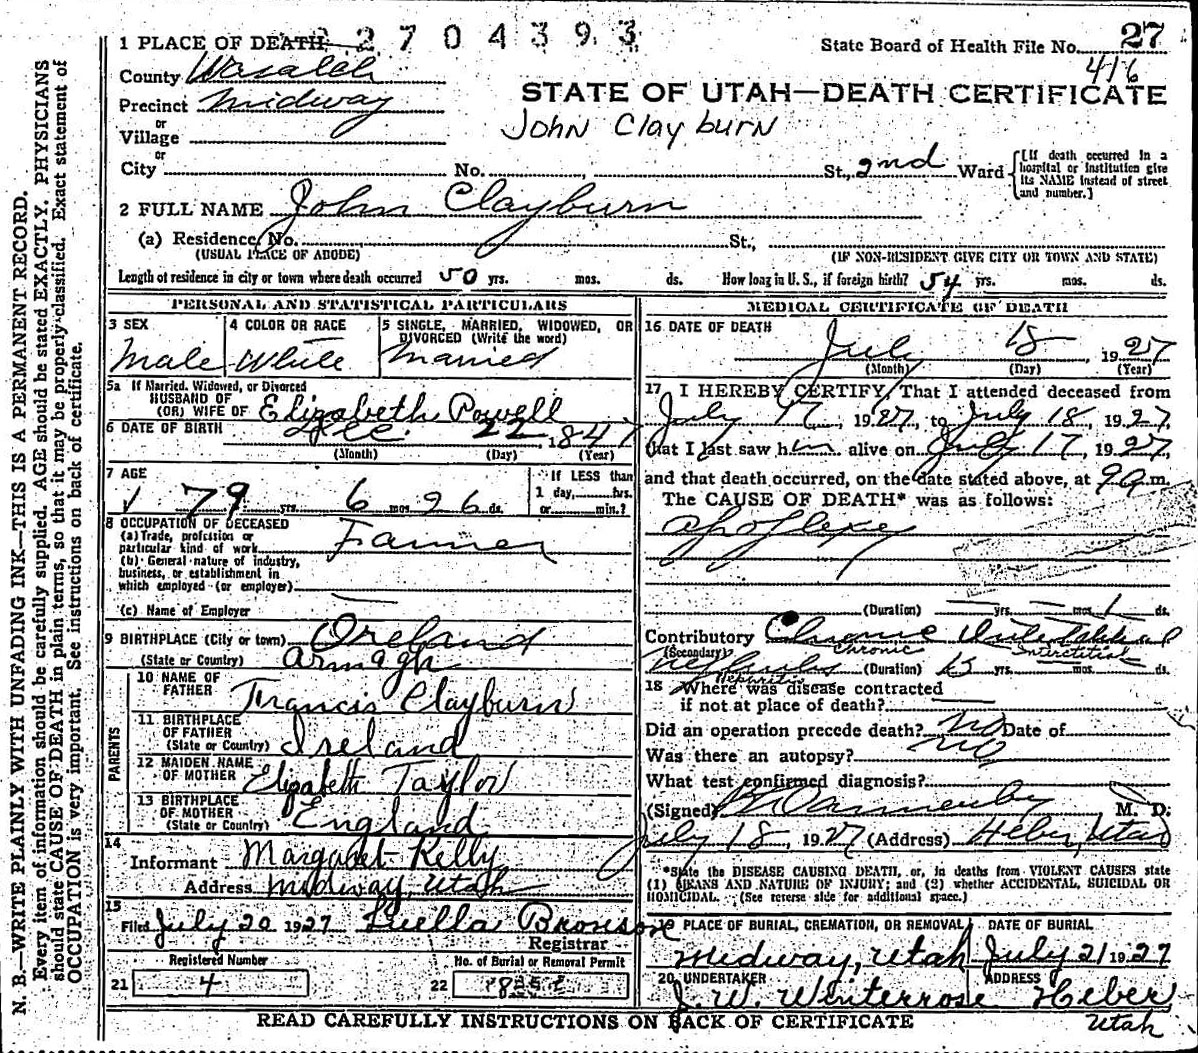 2704393
1 PLACE OF DEATH
State Board of Health File No. 27
416
County Wasatch
Precinct Midway
or
Village
or
City No. , St., 2nd Ward
[If death occurred in a hospital or institution give its NAME instead of street and number.]
STATE OF UTAH—DEATH CERTIFICATE
John Clayburn
2 FULL NAME John Clayburn
(a) Residence, No. St.,
(USUAL PLACE OF ABODE) (IF NON-RESIDENT GIVE CITY OR TOWN AND STATE)
Length of residence in city or town where death occurred 50 yrs. mos. ds. How long in U. S., if foreign birth? 54 yrs. mos. ds.
PERSONAL AND STATISTICAL PARTICULARS
3 SEX
Male
4 COLOR OR RACE
White
5 SINGLE, MARRIED, WIDOWED, OR DIVORCED (Write the word)
Married
5a If Married, Widowed, or Divorced
HUSBAND OF
(OR) WIFE OF Elizabeth Powell
6 DATE OF BIRTH Dec. 22 1847
(Month) (Day) (Year)
7 AGE
79 yrs. 6 mos. 26 ds.
If LESS than
1 day, hrs.
or min.?
8 OCCUPATION OF DECEASED
(a) Trade, profession or
particular kind of work Farmer
(b) General nature of industry,
business, or establishment in
which employed (or employer)
(c) Name of Employer
9 BIRTHPLACE (City or town) Oreland
(State or Country) Armagh
PARENTS
10 NAME OF
FATHER Francis Clayburn
11 BIRTHPLACE
OF FATHER
(State or Country) Ireland
12 MAIDEN NAME
OF MOTHER Elizabeth Taylor
13 BIRTHPLACE
OF MOTHER
(State or Country) England
14
Informant Margabet Kelly
Address Midway, Utah
15
Filed July 20 1927 Luella Bronson
Registrar
Registered Number No. of Burial or Removal Permit
21 4 22
MEDICAL CERTIFICATE OF DEATH
16 DATE OF DEATH
July 18, 1927
(Month) (Day) (Year)
17 I HEREBY CERTIFY, That I attended deceased from
July 17, 1927, to July 18, 1927,
that I last saw him alive on July 17, 1927,
and that death occurred, on the date stated above, at 9 a.m.
The CAUSE OF DEATH* was as follows:
apoplexey
(Duration) yrs. mos. 1 ds.
Contributory Chronic Interstitial
(Secondary) Chronic Interstitial
Nephritis (Duration) 15 yrs. mos. ds.
Nephritis
18 Where was disease contracted
if not at place of death?
Did an operation precede death? no Date of
Was there an autopsy? no
What test confirmed diagnosis?
(Signed) M. D.
July 18, 1927 (Address) Heber, Utah
*State the DISEASE CAUSING DEATH, or, in deaths from VIOLENT CAUSES state
(1) MEANS AND NATURE OF INJURY; and (2) whether ACCIDENTAL, SUICIDAL OR
HOMICIDAL. (See reverse side for additional space.)
19 PLACE OF BURIAL, CREMATION, OR REMOVAL
Midway, Utah
DATE OF BURIAL
July 21 1927
20 UNDERTAKER
J. W. Winterrose
ADDRESS
Heber
Utah
READ CAREFULLY INSTRUCTIONS ON BACK OF CERTIFICATE
N. B.—WRITE PLAINLY WITH UNFADING INK—THIS IS A PERMANENT RECORD.
Every item of information should be carefully supplied. AGE should be stated EXACTLY. PHYSICIANS
should state CAUSE OF DEATH in plain terms, so that it may be properly classified. Exact statement of
OCCUPATION is very important. See instructions on back of certificate.